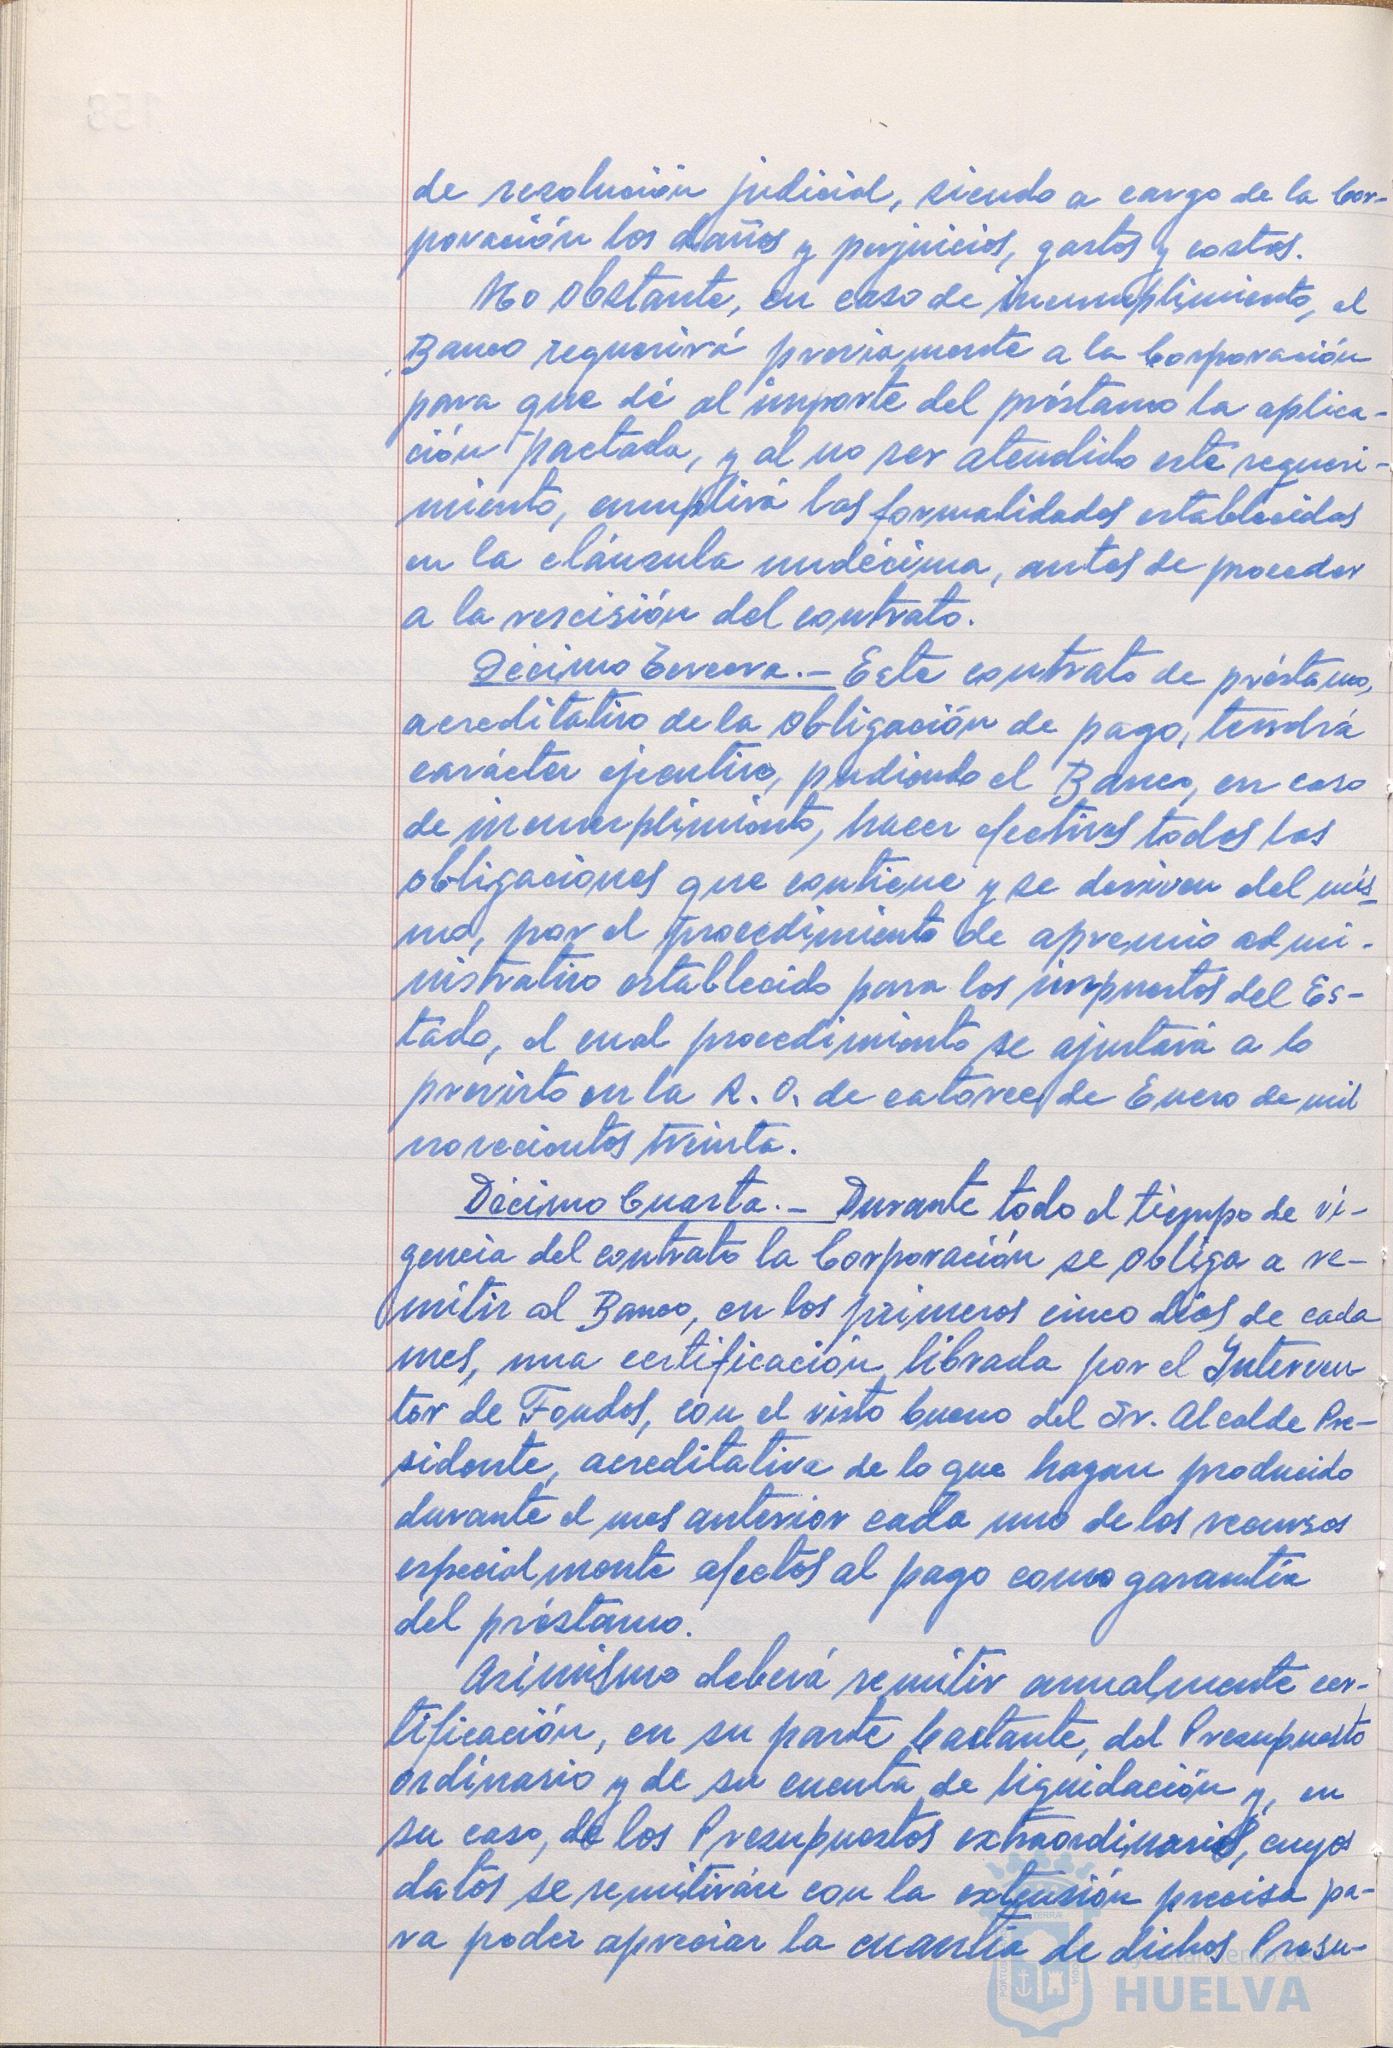 de resolución judicial, siendo a cargo de la Cor-
poración los daños y perjuicios, gastos y costas.
No obstante, en caso de incumplimiento, el
Banco requerirá previamente a la Corporación
para que dé al importe del préstamo la aplica-
ción pactada, y al no ser atendido este requeri-
miento, cumplirá las formalidades establecidas
en la cláusula undécima, antes de proceder
a la rescisión del contrato.
Décimo Tercera.- Este contrato de préstamo,
acreditativo de la obligación de pago, tendrá
carácter ejecutivo, pudiendo el Banco, en caso
de incumplimiento, hacer efectivas todas las
obligaciones que contiene y se deriven del mis-
mo, por el procedimiento de apremio admi-
nistrativo establecido para los impuestos del Es-
tado, el cual procedimiento se ajustará a lo
previsto en la R. O. de catorce de Enero de mil
novecientos treinta.
Décimo Cuarta.- Durante todo el tiempo de vi-
gencia del contrato la Corporación se obliga a re-
mitir al Banco, en los primeros cinco días de cada
mes, una certificación librada por el Interven
tor de Fondos, con el visto bueno del Sr. Alcalde Pre-
sidente, acreditativa de lo que hagan producido
durante el mes anterior cada uno de los recursos
especialmente afectos al pago como garantía
del préstamo.
Asimismo deberá remitir anualmente cer-
tificación, en su parte bastante, del Presupuesto
ordinario y de su cuenta de liquidación y, en
su caso, de los Presupuestos extraordinarios, cuyos
datos se remitirán con la extensión precisa pa-
ra poder apreciar la cuantía de dichos Presu-
Ayuntamiento de
HUELVA
158